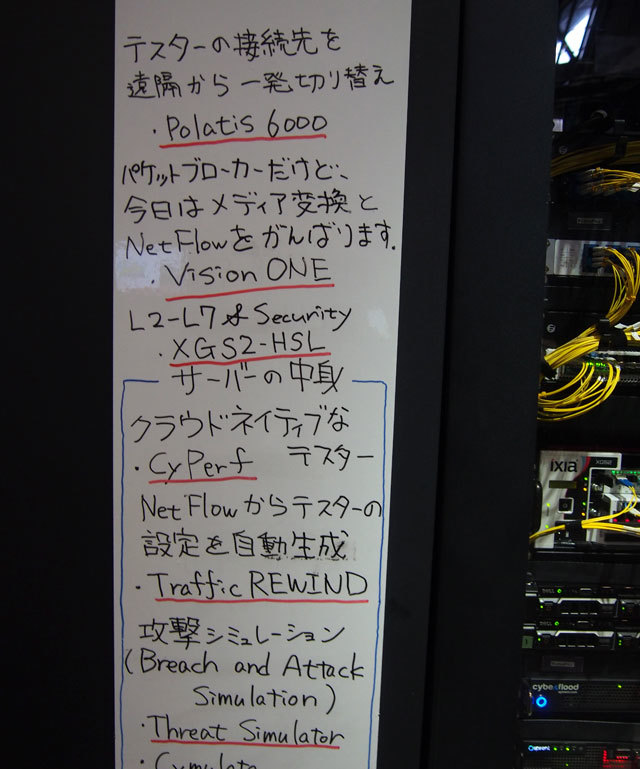 テスターの接続先を
遠隔から一発切り替え
・Polatis 6000
パケットブローカーだけど、
今日はメディア変換と
NetFlowをがんばります.
・Vision ONE
L2-L7 & Security
・XGS2-HSL
サーバーの中身
クラウドネイティブな
・CyPerf テスター
NetFlowからテスターの
設定を自動生成
・Traffic REWIND
攻撃シミュレーション
(Breach and Attack
Simulation)
・Threat Simulator
ixia
XGS2
DELL
DELL
cyberflood